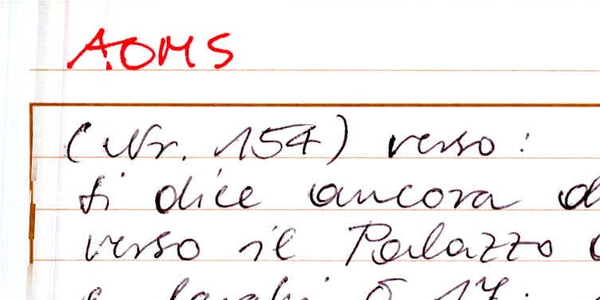 AOMS
(Nr. 154) verso:
si dice ancora d
verso il Palazzo
e 17: